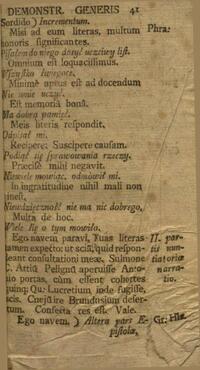 DEMONSTR. GENERIS 41
Sordido ) Incrementum.
Misi ad eum literas, multum Phra:
honoris significantes.
Pisałem do niego dosyć uczciwy list.
Omnium est loquacissimus.
Wszystko świegoce.
Minimè aptus est ad docendum
Nie umie uczyć.
Est memoriâ bonâ.
Ma dobrą pamięć.
Meis literis respondit.
Odpisał mi.
Recipere: Suscipere causam.
Podiąć się sprawowania rzeczy.
Præcisè mihi negavit.
Niewiele mowiąc, odmówił mi.
In ingratitudine nihil mali non
inest.
Niewdzięczność nie ma nic dobrego,
Multa de hoc.
Wiele się o tym mowiło.
Ego navem paravi, Tuas literas II. par-
tamen expecto: ut sciâ, quid respon- tis nun-
deant consultationi meæ. Sulmone tiatoriæ
C. Attiû Pelignû aperuisse Anto- narra-
nio portas, cùm essent cohortes tio.
quinq; Qu: Lucretium inde fugisse,
scis. Cnejû ire Brundusium deser-
tum. Confecta res est. Vale.
Ego navem. ) Altera pars E- Gr: Hist.
pistolæ,